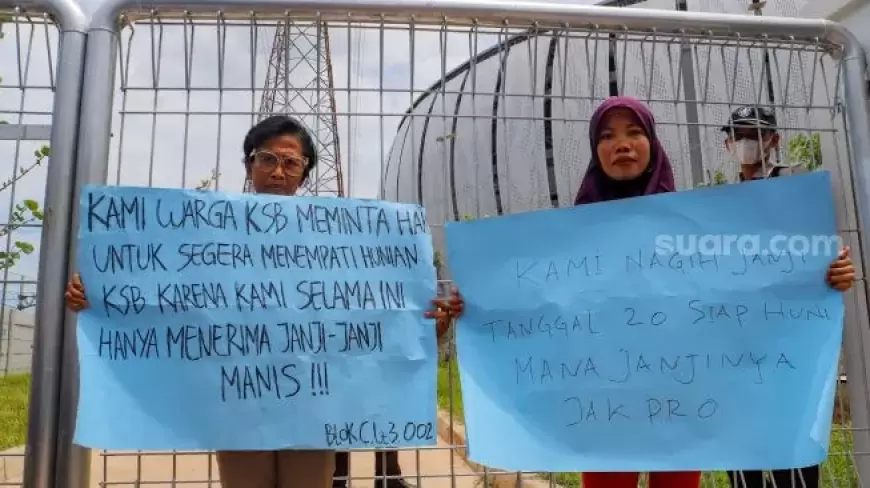 KAMI WARGA KSB MEMINTA HA
UNTUK SEGERA MENEMPATI HUNIAN
KSB KARENA KAMI SELAMA INI
HANYA MENERIMA JANJI-JANJI
MANIS !!!
BLOK C. Lt 3. 002
suara.com
KAMI NAGIH JANJI
TANGGAL 20 SIAP HUNI
MANA JANJINYA
JAK PRO